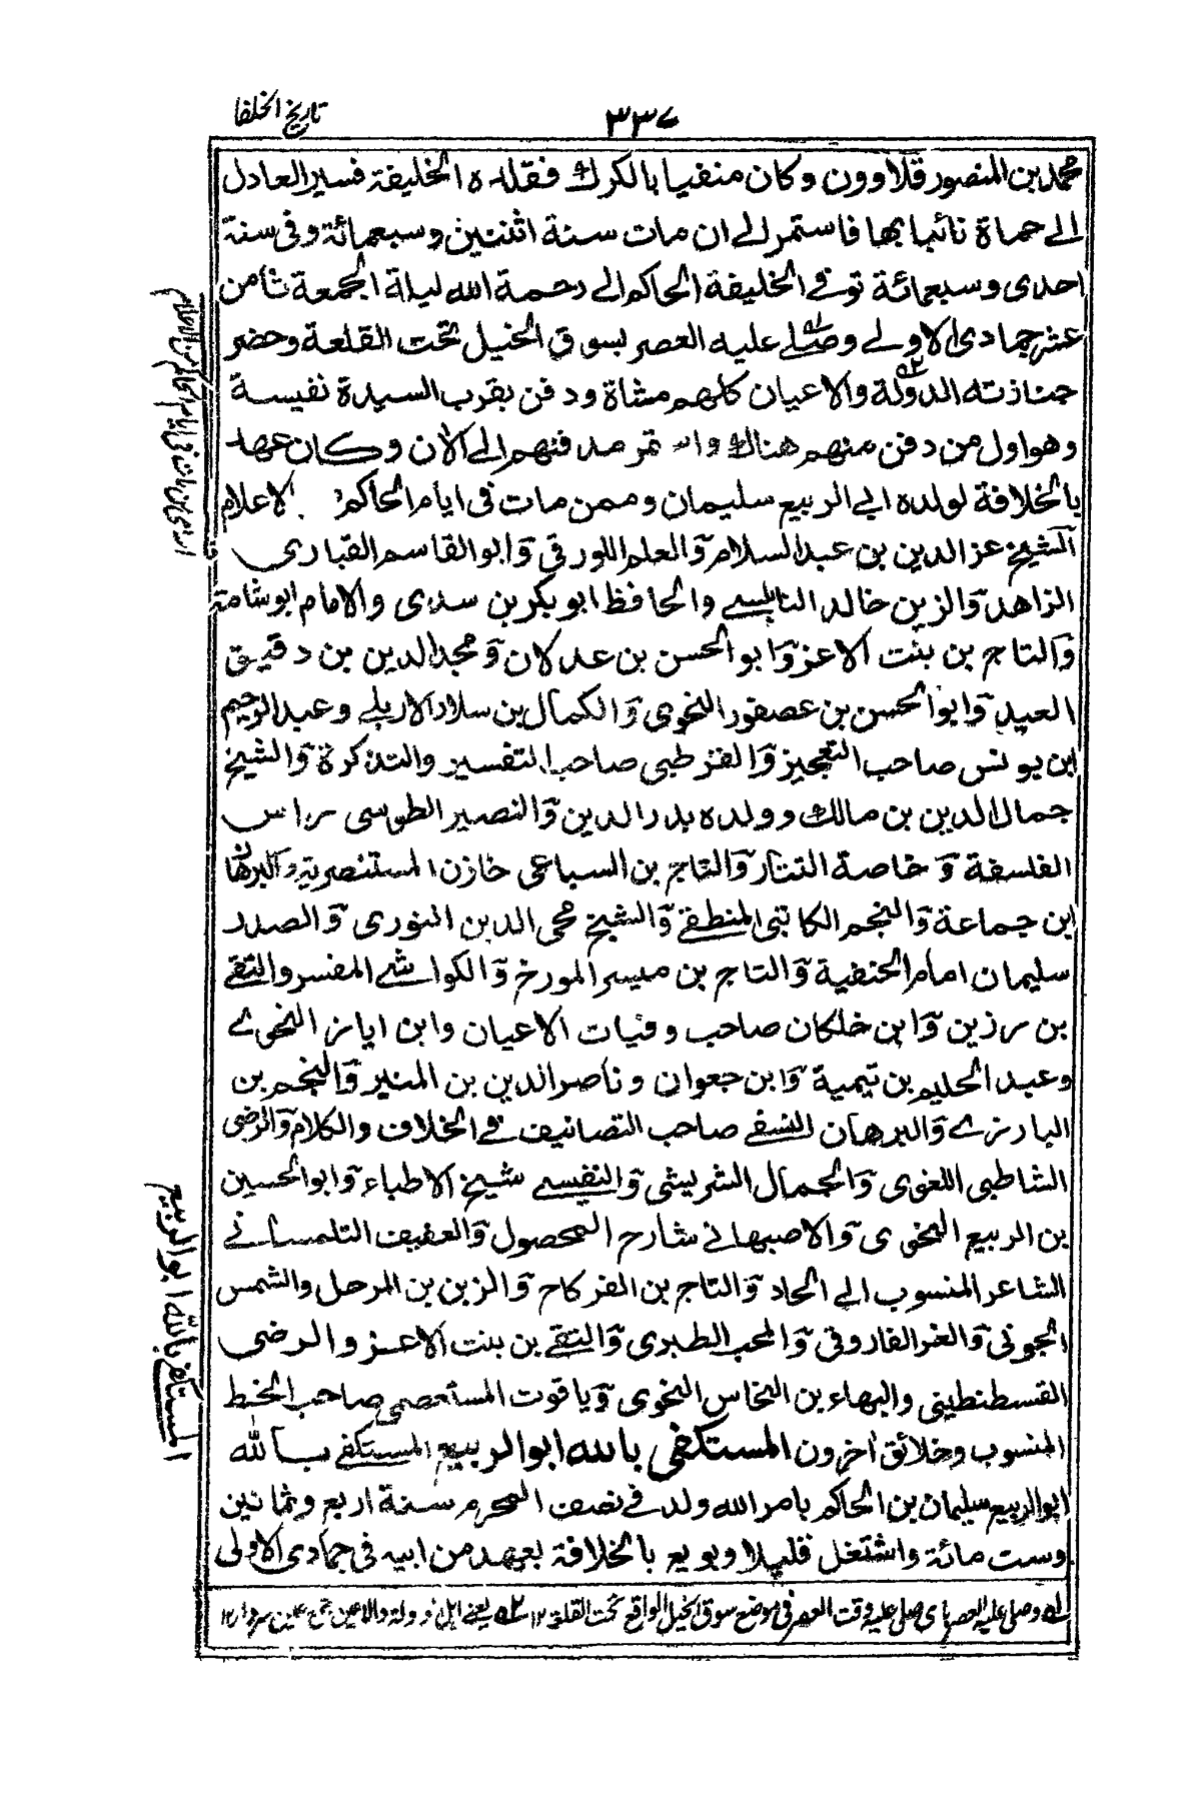 تاريخ الخلفا
٣٣٧
محمد بن المنصور قلاوون وكان منفيا بالكرك فقلده الخليفة فسير العادل
الے حماة نائبا بها فاستمر الے ان مات سنة اثنتين وسبعمائة وفى سنة
احدى وسبعمائة توفے الخليفة الحاكم الے رحمة الله ليلة الجمعة ثامن
عشر جمادى الاولے وصلے عليه العصر بسوق الخيل تحت القلعة وحضر
جنازته الدولة والاعيان كلهم مشاة ودفن بقرب السيدة نفيسة
وهو اول من دفن منهم هناك واستمر مدفنهم الے الآن وكان عهد
بالخلافة لولده ابي الربيع سليمان وممن مات فى ايام الحاكم الاعلام
الشيخ عز الدين بن عبد السلام والعلم اللورقي وابو القاسم القبارى
الزاهد والزين خالد النابلسے والحافظ ابو بكر بن سدى والامام ابو شامة
والتاج بن بنت الاعز وابو الحسن بن عدلان ومجد الدين بن دقيق
العيد وابو الحسن بن عصفور النحوى والكمال بن سلار الاربلے وعبد الرحيم
ابن يونس صاحب التعجيز والقرطبى صاحب التفسير والتذكرة والشيخ
جمال الدين بن مالك وولده بدر الدين والنصير الطوسى راس
الفلسفة وخاصة التتار والتاج بن السباعى خازن المستنصرية والبرهان
ابن جماعة والنجم الكاتبى المنطقے والشيخ محى الدين النورى والصدر
سليمان امام الحنفية والتاج بن ميسر المورخ والكواشے المفسر والتقے
بن رزين وابن خلكان صاحب وفيات الاعيان وابن اياز النحوے
وعبد الحليم بن تيمية وابن جعوان وناصر الدين بن المنير والنجم بن
البارزے والبرهان النسفے صاحب التصانيف فے الخلاف والكلام والرضى
الشاطبى اللغوى والجمال الشريشى والنفيسے شيخ الاطباء وابو الحسين
بن الربيع النحوى والاصبهانے شارح المحصول والعفيف التلمسانے
الشاعر المنسوب الے الحاد والتاج بن الفركاح والزين بن المرحل والشمس
الجونى والعز الفاروقى والمحب الطبرى والتقے بن بنت الاعز والرضى
القسطنطينى والبهاء بن النحاس النحوى وياقوت المستعصمى صاحب الخط
المنسوب وخلائق آخرون المستكفى بالله ابو الربيع المستكفے بالله
ابو الربيع سليمان بن الحاكم بامر الله ولد فے نصف المحرم سنة اربع وثمانين
وست مائة واشتغل قليلا وبويع بالخلافة بعهد من ابيه فى جمادى الاولى
له وصلى عليه العصر اى صلى عليه وقت العصر فى موضع سوق الخيل الواقع تحت القلعة ١٢
المستكفى بالله ابو الربيع